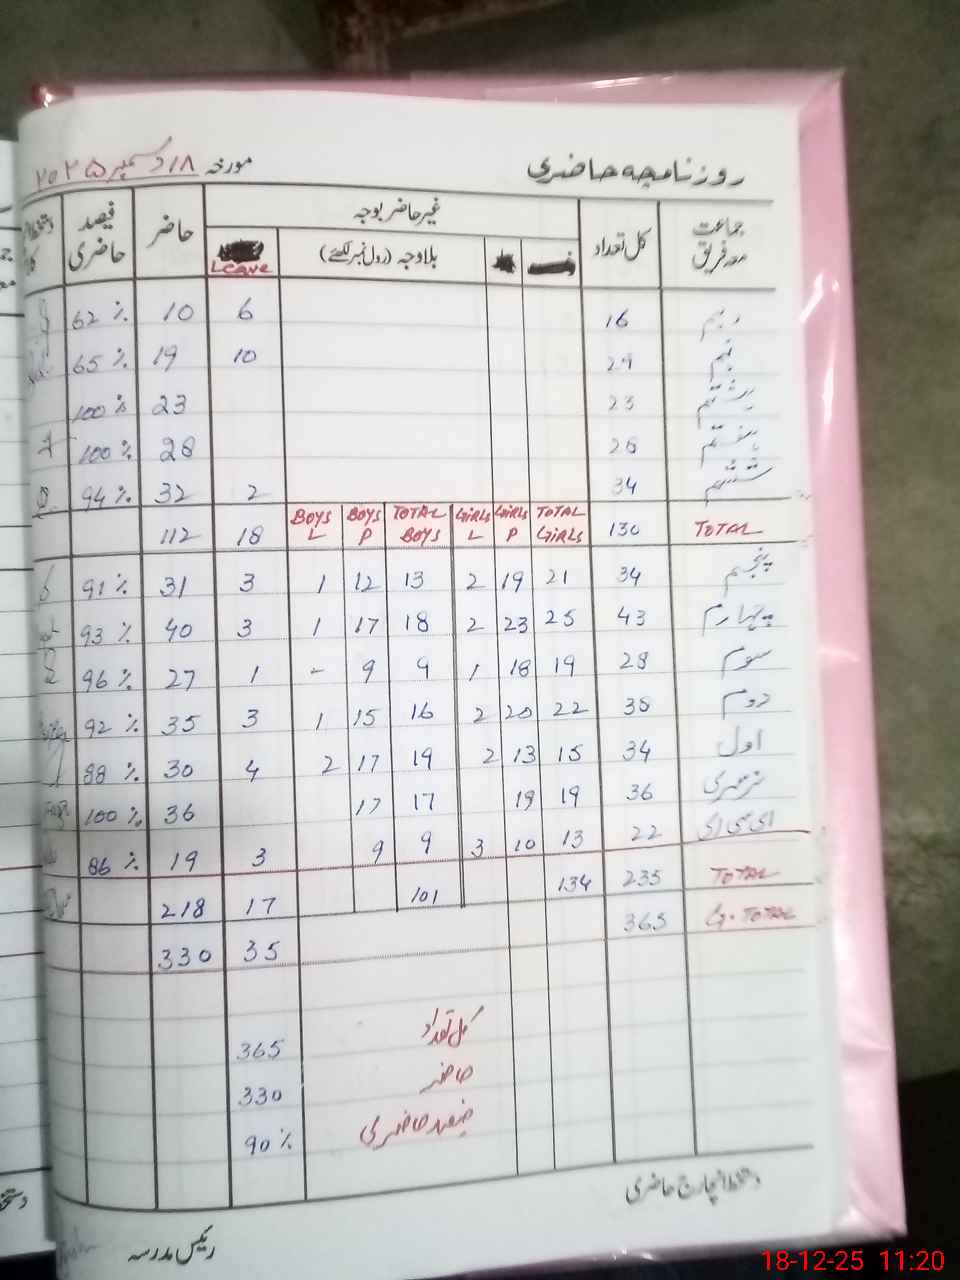 روزنامچہ حاضری مورخہ ۱۸ دسمبر ۲۰۲۵
جماعت معہ فریق کل تعداد غیر حاضر بوجہ حاضر فیصد حاضری
بلاوجہ (رول نمبر لکھئے) Leave
دہم 16 6 10 62 %
نہم 29 10 19 65 %
ہشتم 23 23 100 %
ہفتم 28 28 100 %
ششم 34 2 32 94 %
TOTAL 130 TOTAL GIRLS GIRLS P GIRLS L TOTAL BOYS BOYS P BOYS L 18 112
پنجم 34 21 19 2 13 12 1 3 31 91 %
چہارم 43 25 23 2 18 17 1 3 40 93 %
سوم 28 19 18 1 9 9 - 1 27 96 %
دوم 38 22 20 2 16 15 1 3 35 92 %
اول 34 15 13 2 19 17 2 4 30 88 %
نرسری 36 19 19 17 17 36 100 %
ای سی ای 22 13 10 3 9 9 3 19 86 %
TOTAL 235 134 101 17 218
G.TOTAL 365 35 330
کل تعداد 365
حاضر 330
فیصد حاضری 90 %
دستخط انچارج حاضری
رئیس مدرسہ
18-12-25 11:20